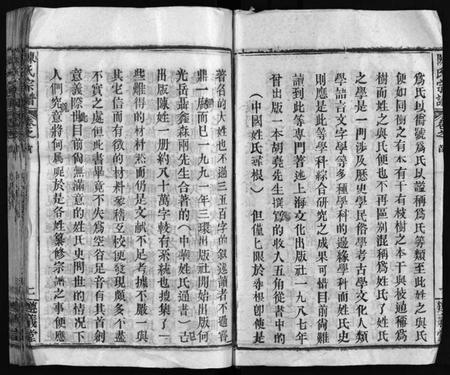 為氏以爵號為氏以諡稱為氏等類至此姓之與氏
便如同樹之有木有干有枝樹之本干與枝通稱為
樹而姓之與氏便也不再區別混稱為姓氏了姓氏
之學是一門涉及歷史學民俗學考古學文化人類
學語言文字學等多種學科的邊緣學科而姓氏史
則應是此等學科綜合研究之成果可惜目前尚難
請到此等專門著述上海文化出版社一九八七年
曾出版一本胡堯先生撰寫的收人五角從書中的
（中國姓氏尋根） 但僅上限於尋根即使是
著名的大姓也不過三五百字的叙述讀者不過嘗
鼎一臠而已一九九一年三環出版社開始出版何
光岳聶鑫森兩先生合著的（中華姓氏通書）已
出版陳姓一冊約八十萬字較有系統也搜集了一
些難得的材料然而仍是文獻不足考據不嚴一與
其定信而有徵的材料參稽互校便發現頗多不盡
不實之處但此書畢竟不失為空谷足音有其首創
意義際此目前尚無滿意的姓氏史問世的情況下
人們究竟將何為呢於是各姓纂修宗譜之事便應
陳氏宗譜
二 遵義堂